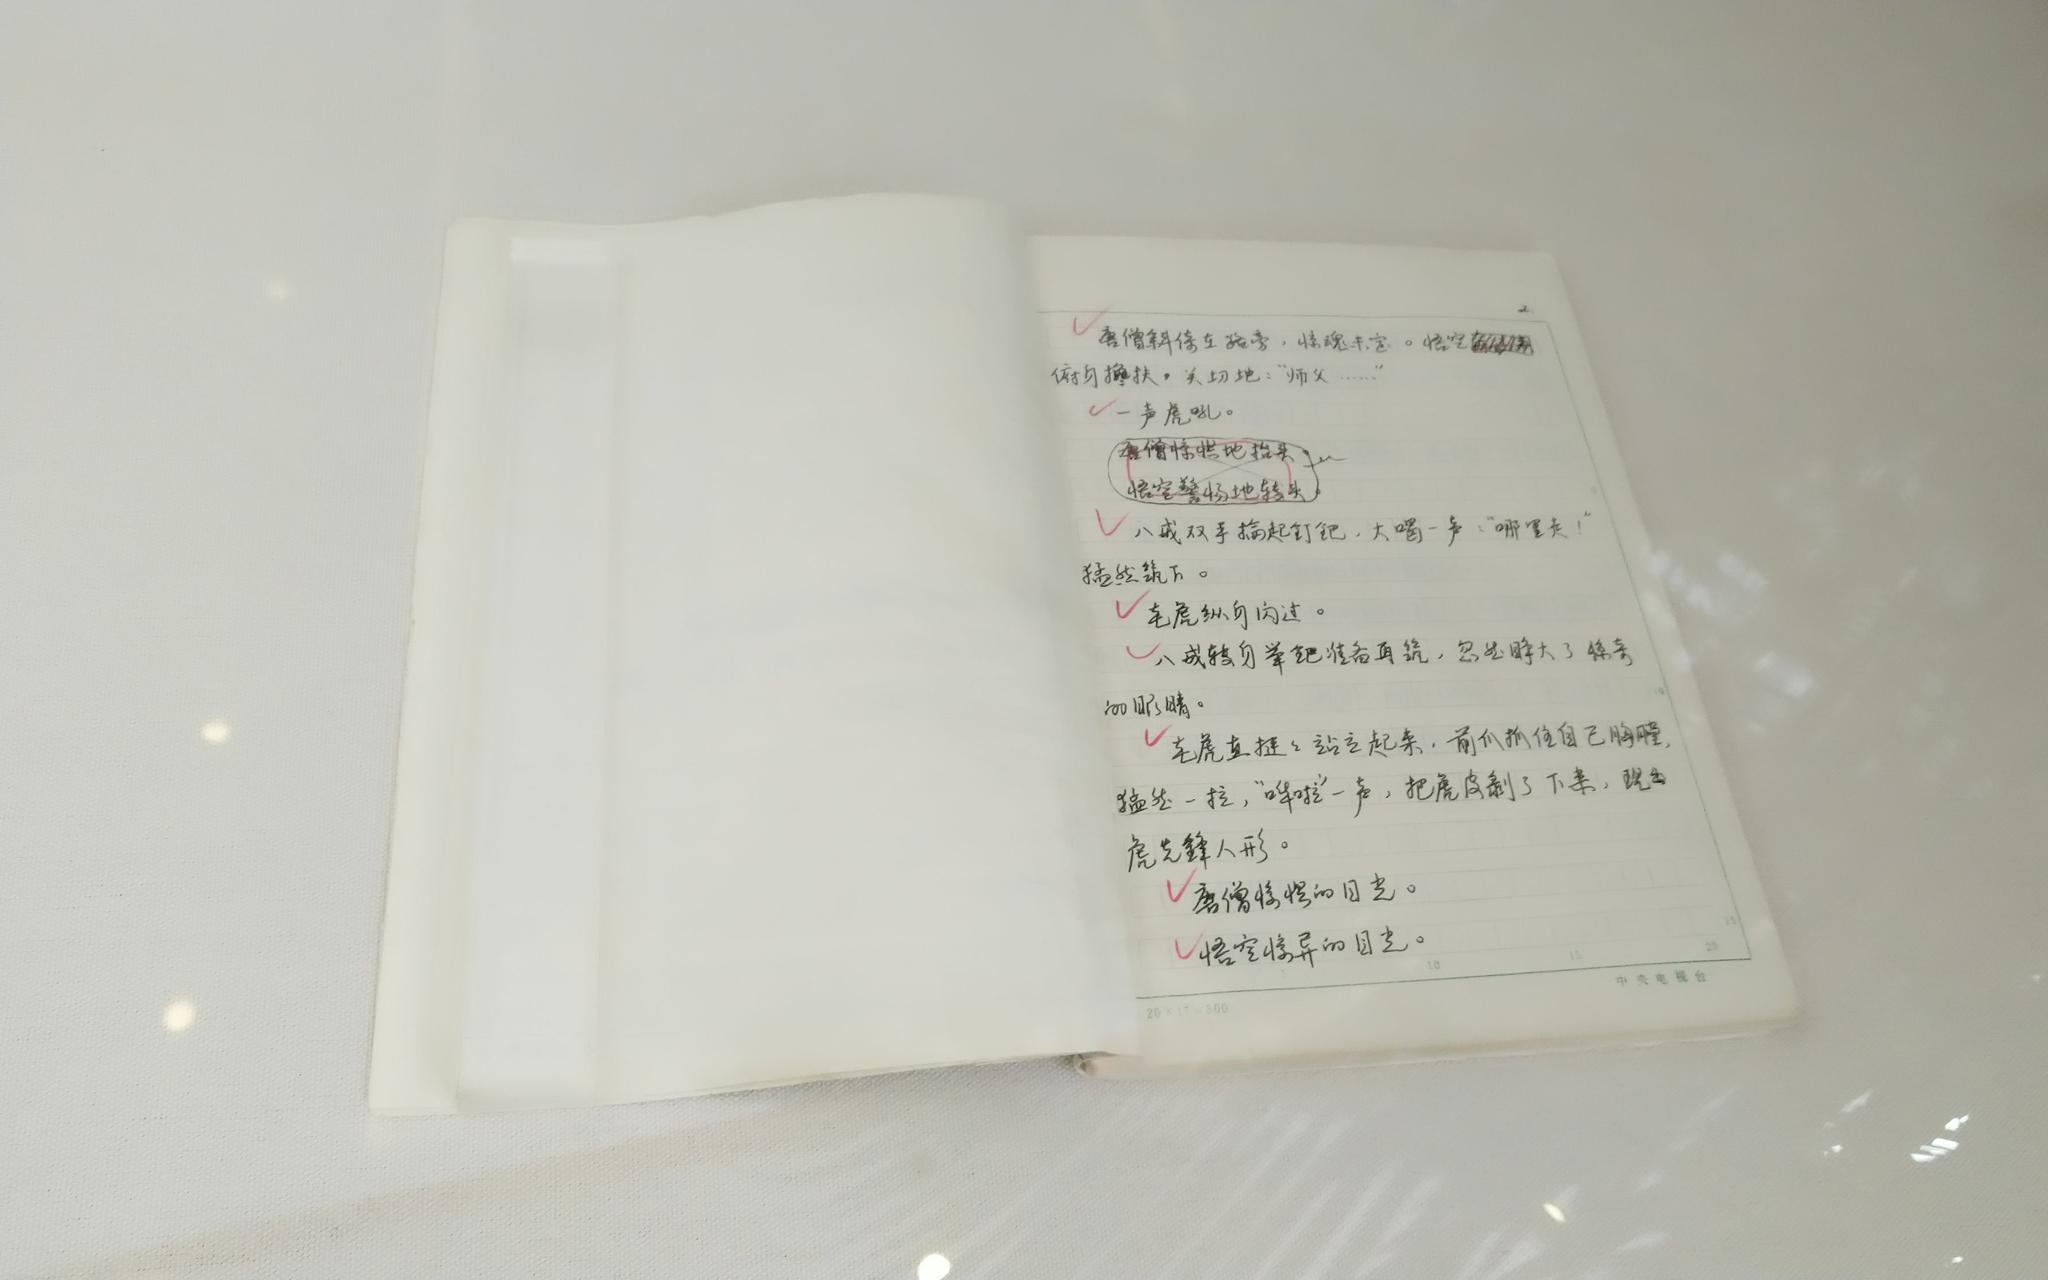 2
唐僧斜倚在路旁，惊魂未定。悟空
俯身搀扶。关切地：“师父……”
一声虎吼。
唐僧惊惧地抬头。
悟空警惕地转头。
八戒双手抡起钉钯，大喝一声：“哪里走！”
猛然筑下。
老虎纵身闪过。
八戒转身举钯准备再筑，忽然睁大了惊奇
的眼睛。
老虎直挺々站立起来，前爪抓住自己胸膛，
猛然一拉，“哗啦”一声，把虎皮剥了下来，现出
虎先鋒人形。
唐僧惊惧的目光。
悟空惊异的目光。
10
15
5
10
15
20
中央电视台
20×17=300